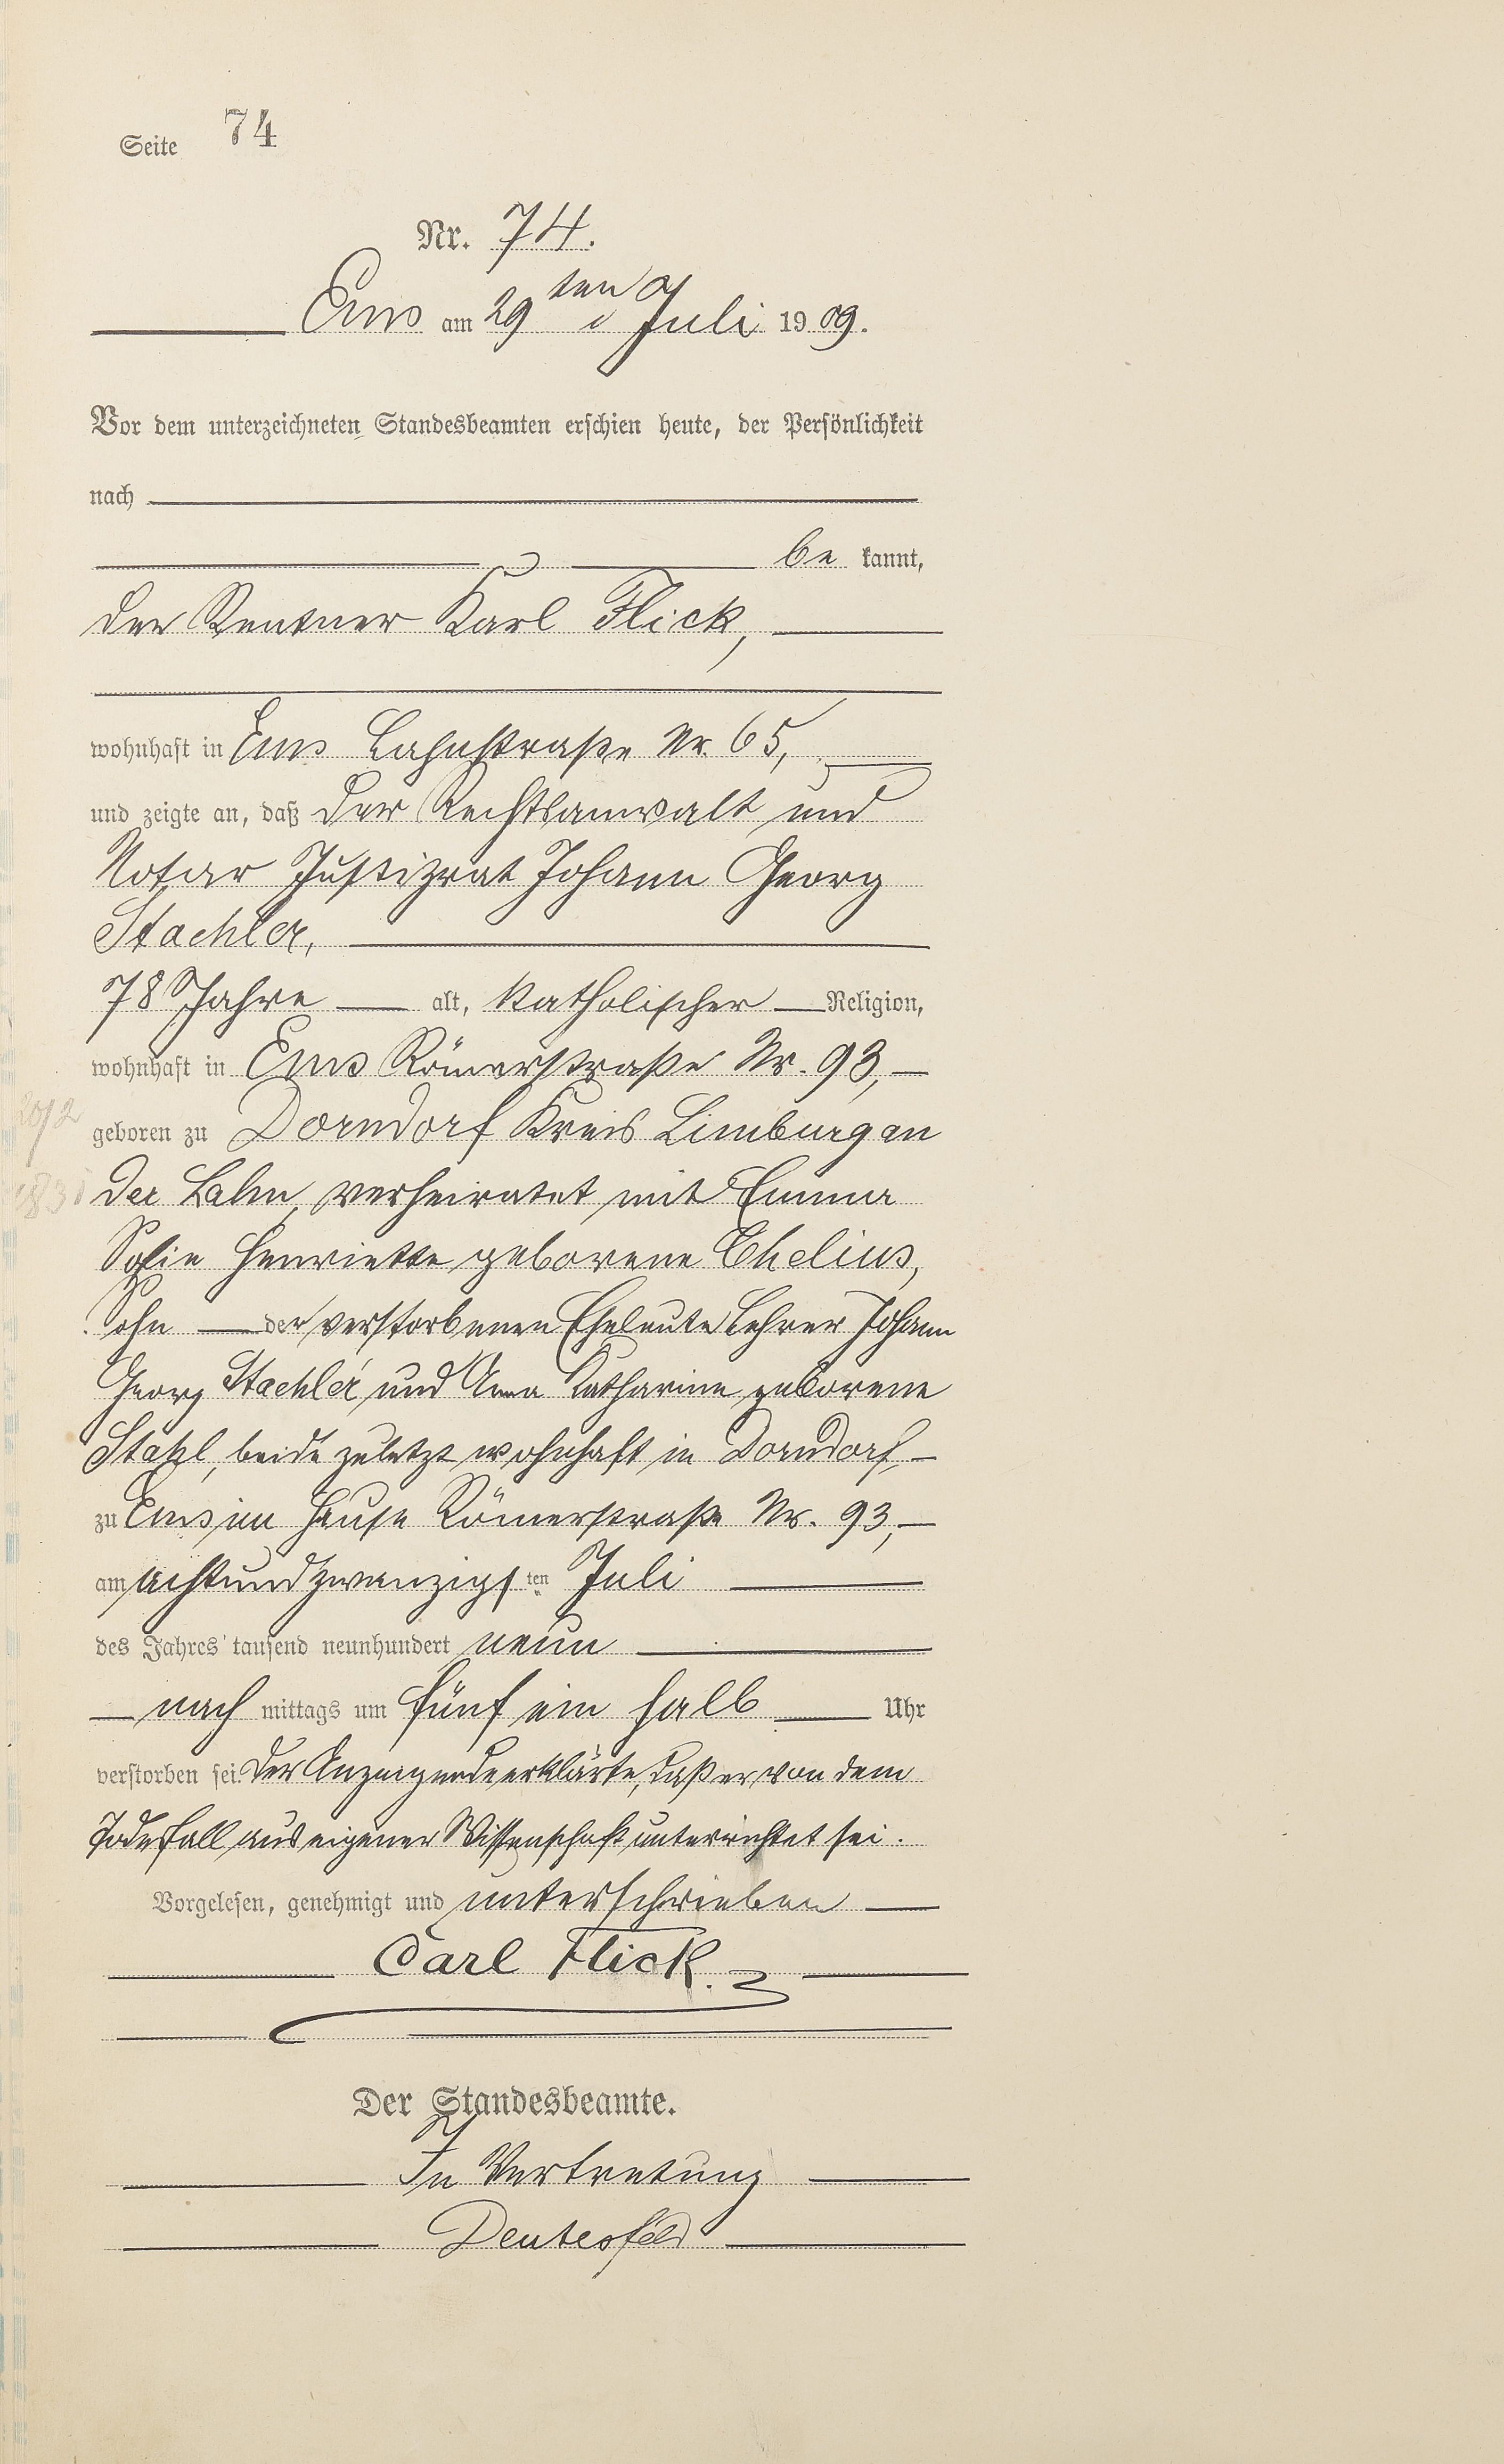 Seite 74
Nr. 74.
Ems am 29ten Juli 1909.
Vor dem unterzeichneten Standesbeamten erschien heute, der Persönlichkeit
nach
be kannt,
der Rentner Karl Flick,
wohnhaft in Ems Lahnstraße Nr. 65,
und zeigte an, daß der Rechtsanwalt und
Notar Justizrat Johann Georg
Stachler,
78 Jahre alt, katholischer Religion,
wohnhaft in Ems Römerstraße Nr. 93,
geboren zu Dorndorf Kreis Limburg an
der Lahn, verheiratet mit Emma
Sofie Henriette geborene Chelius,
Sohn der verstorbenen Eheleute Lehrer Johann
Georg Stachler und Anna Katharine geborene
Stahl, beide zuletzt wohnhaft in Dorndorf,
zu Ems im Hause Römerstraße Nr. 93,
am achtundzwanzigsten Juli
des Jahres tausend neunhundert neun
nach mittags um fünf ein halb Uhr
verstorben sei. Der Anzeigende erklärte, daß er von dem
Todesfall aus eigener Wissenschaft unterrichtet sei.
Vorgelesen, genehmigt und unterschrieben
Carl Flick.
Der Standesbeamte.
In Vertretung